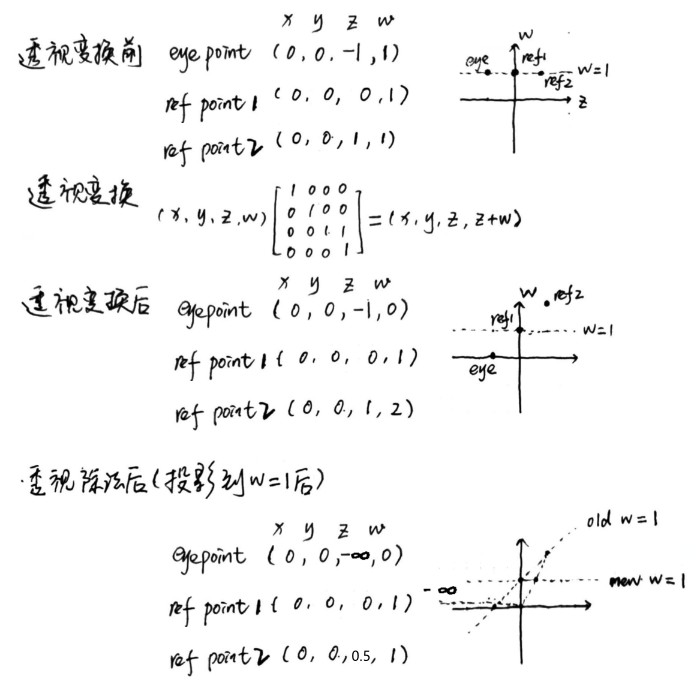 x y z w
透视变换前 eye point (0, 0, -1, 1)
ref point 1 (0, 0, 0, 1)
ref point 2 (0, 0, 1, 1)
w
eye ref1 w=1
ref2
z
透视变换 (x, y, z, w) [1 0 0 0
0 1 0 0
0 0 1 1
0 0 0 1] = (x, y, z, z+w)
x y z w
透视变换后 eyepoint (0, 0, -1, 0)
ref point 1 ( 0, 0, 0, 1)
ref point 2 (0, 0, 1, 2)
w ref2
ref1 w=1
eye
透视除法后(投影到w=1后)
x y z w
eyepoint (0, 0, -∞, 0)
ref point 1 ( 0, 0, 0, 1)
ref point 2 (0, 0, 0.5, 1)
old w=1
new w=1
-∞